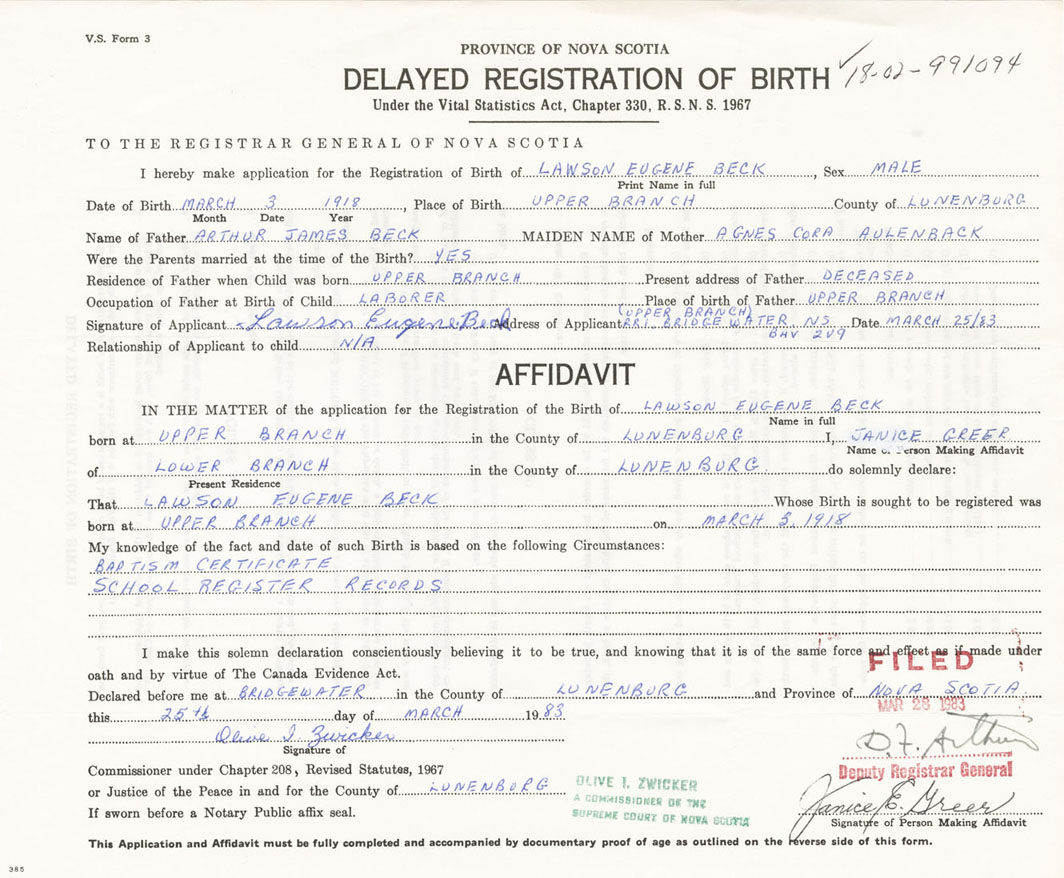 V.S. Form 3
PROVINCE OF NOVA SCOTIA
DELAYED REGISTRATION OF BIRTH
18-02-991094
Under the Vital Statistics Act, Chapter 330, R.S.N.S. 1967
TO THE REGISTRAR GENERAL OF NOVA SCOTIA
I hereby make application for the Registration of Birth of LAWSON EUGENE BECK, Sex MALE
Print Name in full
Date of Birth MARCH 3 1918, Place of Birth UPPER BRANCH County of LUNENBURG
Month Date Year
Name of Father ARTHUR JAMES BECK MAIDEN NAME of Mother AGNES CORA AULENBACK
Were the Parents married at the time of the Birth? YES
Residence of Father when Child was born UPPER BRANCH Present address of Father DECEASED
Occupation of Father at Birth of Child LABORER Place of birth of Father UPPER BRANCH
(UPPER BRANCH)
Signature of Applicant Lawson Eugene Beck Address of Applicant RR1. BRIDGEWATER, NS Date MARCH 25/83
B4V 2V9
Relationship of Applicant to child N/A
AFFIDAVIT
IN THE MATTER of the application for the Registration of the Birth of LAWSON EUGENE BECK
Name in full
born at UPPER BRANCH in the County of LUNENBURG I, JANICE GREER
Name of Person Making Affidavit
of LOWER BRANCH in the County of LUNENBURG do solemnly declare:
Present Residence
That LAWSON EUGENE BECK Whose Birth is sought to be registered was
born at UPPER BRANCH on MARCH 3, 1918
My knowledge of the fact and date of such Birth is based on the following Circumstances:
BAPTISM CERTIFICATE
SCHOOL REGISTER RECORDS
I make this solemn declaration conscientiously believing it to be true, and knowing that it is of the same force and effect as if made under
FILED
oath and by virtue of The Canada Evidence Act.
Declared before me at BRIDGEWATER in the County of LUNENBURG and Province of NOVA SCOTIA
MAR 28 1983
this 25th day of MARCH 1983
Olive I. Zwicker
D.F. Arthur
Signature of
Deputy Registrar General
Commissioner under Chapter 208, Revised Statutes, 1967
or Justice of the Peace in and for the County of LUNENBURG
OLIVE I. ZWICKER
A COMMISSIONER OF THE
SUPREME COURT OF NOVA SCOTIA
Janice E. Greer
If sworn before a Notary Public affix seal.
Signature of Person Making Affidavit
This Application and Affidavit must be fully completed and accompanied by documentary proof of age as outlined on the reverse side of this form.
385